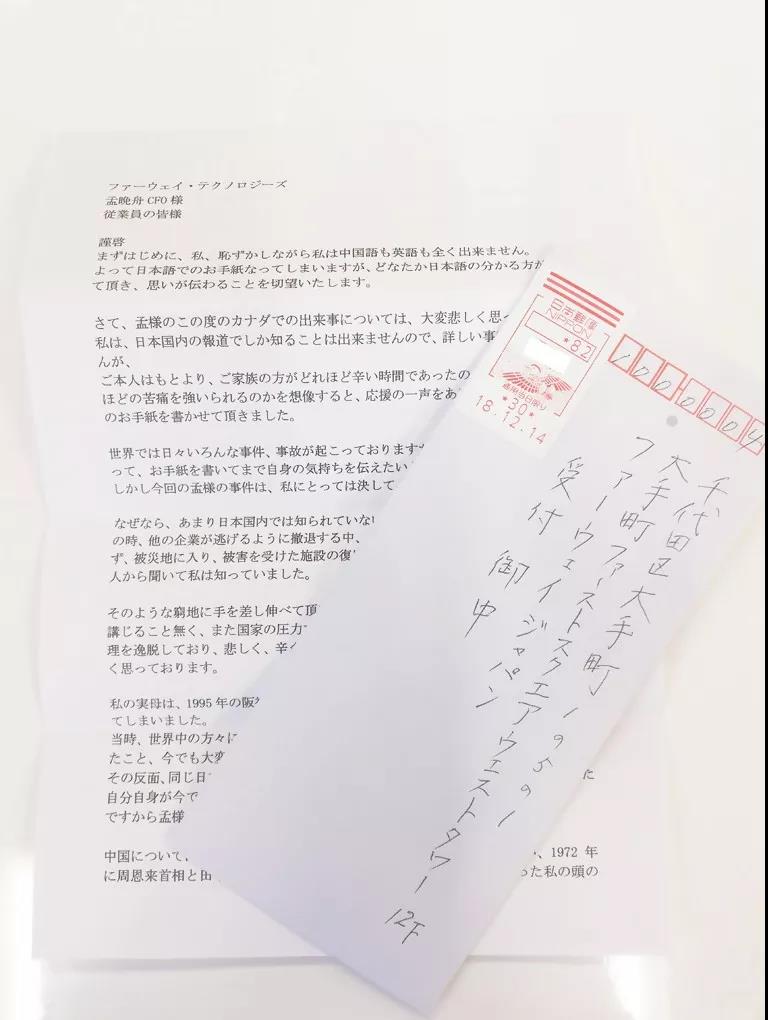 ファーウェイ・テクノロジーズ
孟晩舟 CFO 様
従業員の皆様
謹啓
まずはじめに、私、恥ずかしながら私は中国語も英語も全く出来ません。
よって日本語でのお手紙なってしまいますが、どなたか日本語の分かる方が
て頂き、思いが伝わることを切望いたします。
さて、孟様のこの度のカナダでの出来事については、大変悲しく思
私は、日本国内の報道でしか知ることは出来ませんので、詳しい事
んが、
ご本人はもとより、ご家族の方がどれほど辛い時間であったの
ほどの苦痛を強いられるのかを想像すると、応援の一声をあ
のお手紙を書かせて頂きました。
世界では日々いろんな事件、事故が起こっております
って、お手紙を書いてまで自身の気持ちを伝えたい
しかし今回の孟様の事件は、私にとっては決して
なぜなら、あまり日本国内では知られていな
の時、他の企業が逃げるように撤退する中、
ず、被災地に入り、被害を受けた施設の復
人から聞いて私は知っていました。
そのような窮地に手を差し伸べて頂
講じること無く、また国家の圧力
理を逸脱しており、悲しく、辛
く思っております。
私の実母は、1995 年の阪
てしまいました。
当時、世界中の方々に
たこと、今でも大変
その反面、同じ日
自分自身が今で
ですから孟様
中国について、
、1972 年
に周恩来首相と田
った私の頭の
日本郵便
NIPPON
*82
*30*
18.12.14
1000004
千代田区大手町1の5の1
大手町ファーストスクエアウエストタワー 12F
ファーウェイジャパン
受付 御中